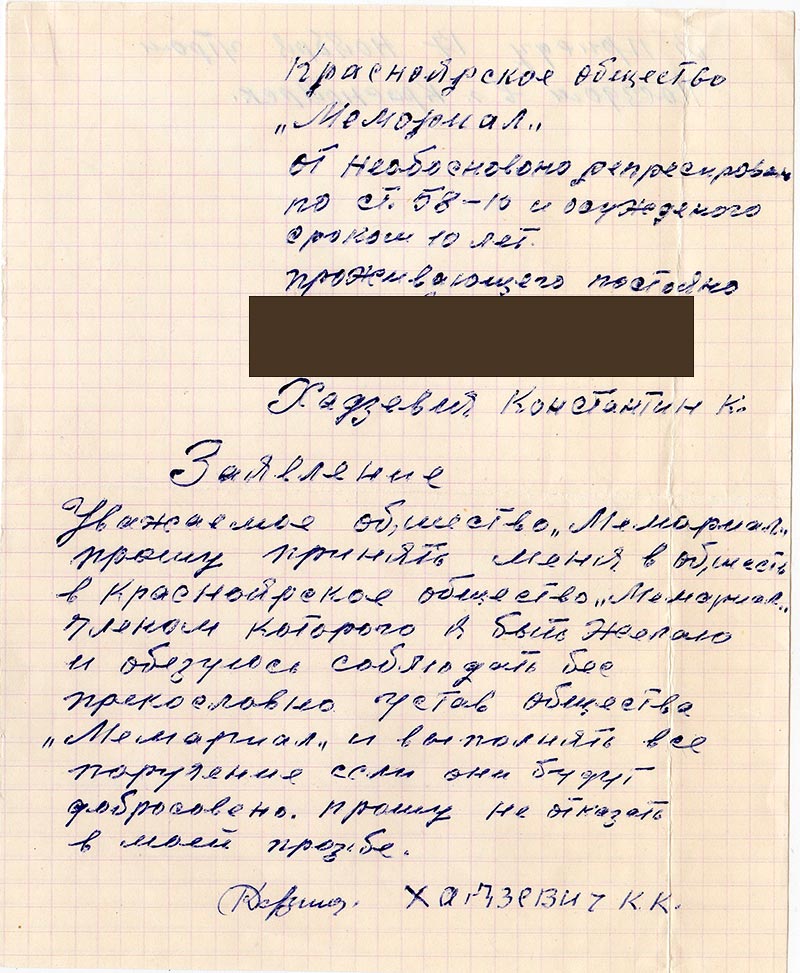 Красноярское общество
„Мемориал„
от необосновано репресирован
по ст. 58-10 и осужденого
сроком 10 лет.
проживающего постояно
Хадзевич Константин К.
Заявление
Уважаемое общество „Мемариал„
прошу принять меня в общесть
в Красноярское общество „Мемариал„
членом которого я быть желаю
и обезуюсь соблюдать бес
прекословно устав общества
„Мемариал„ и выполнять все
поручение если они будут
добросовено. прошу не отказать
в моей прозбе.
Хадзевич К.К.